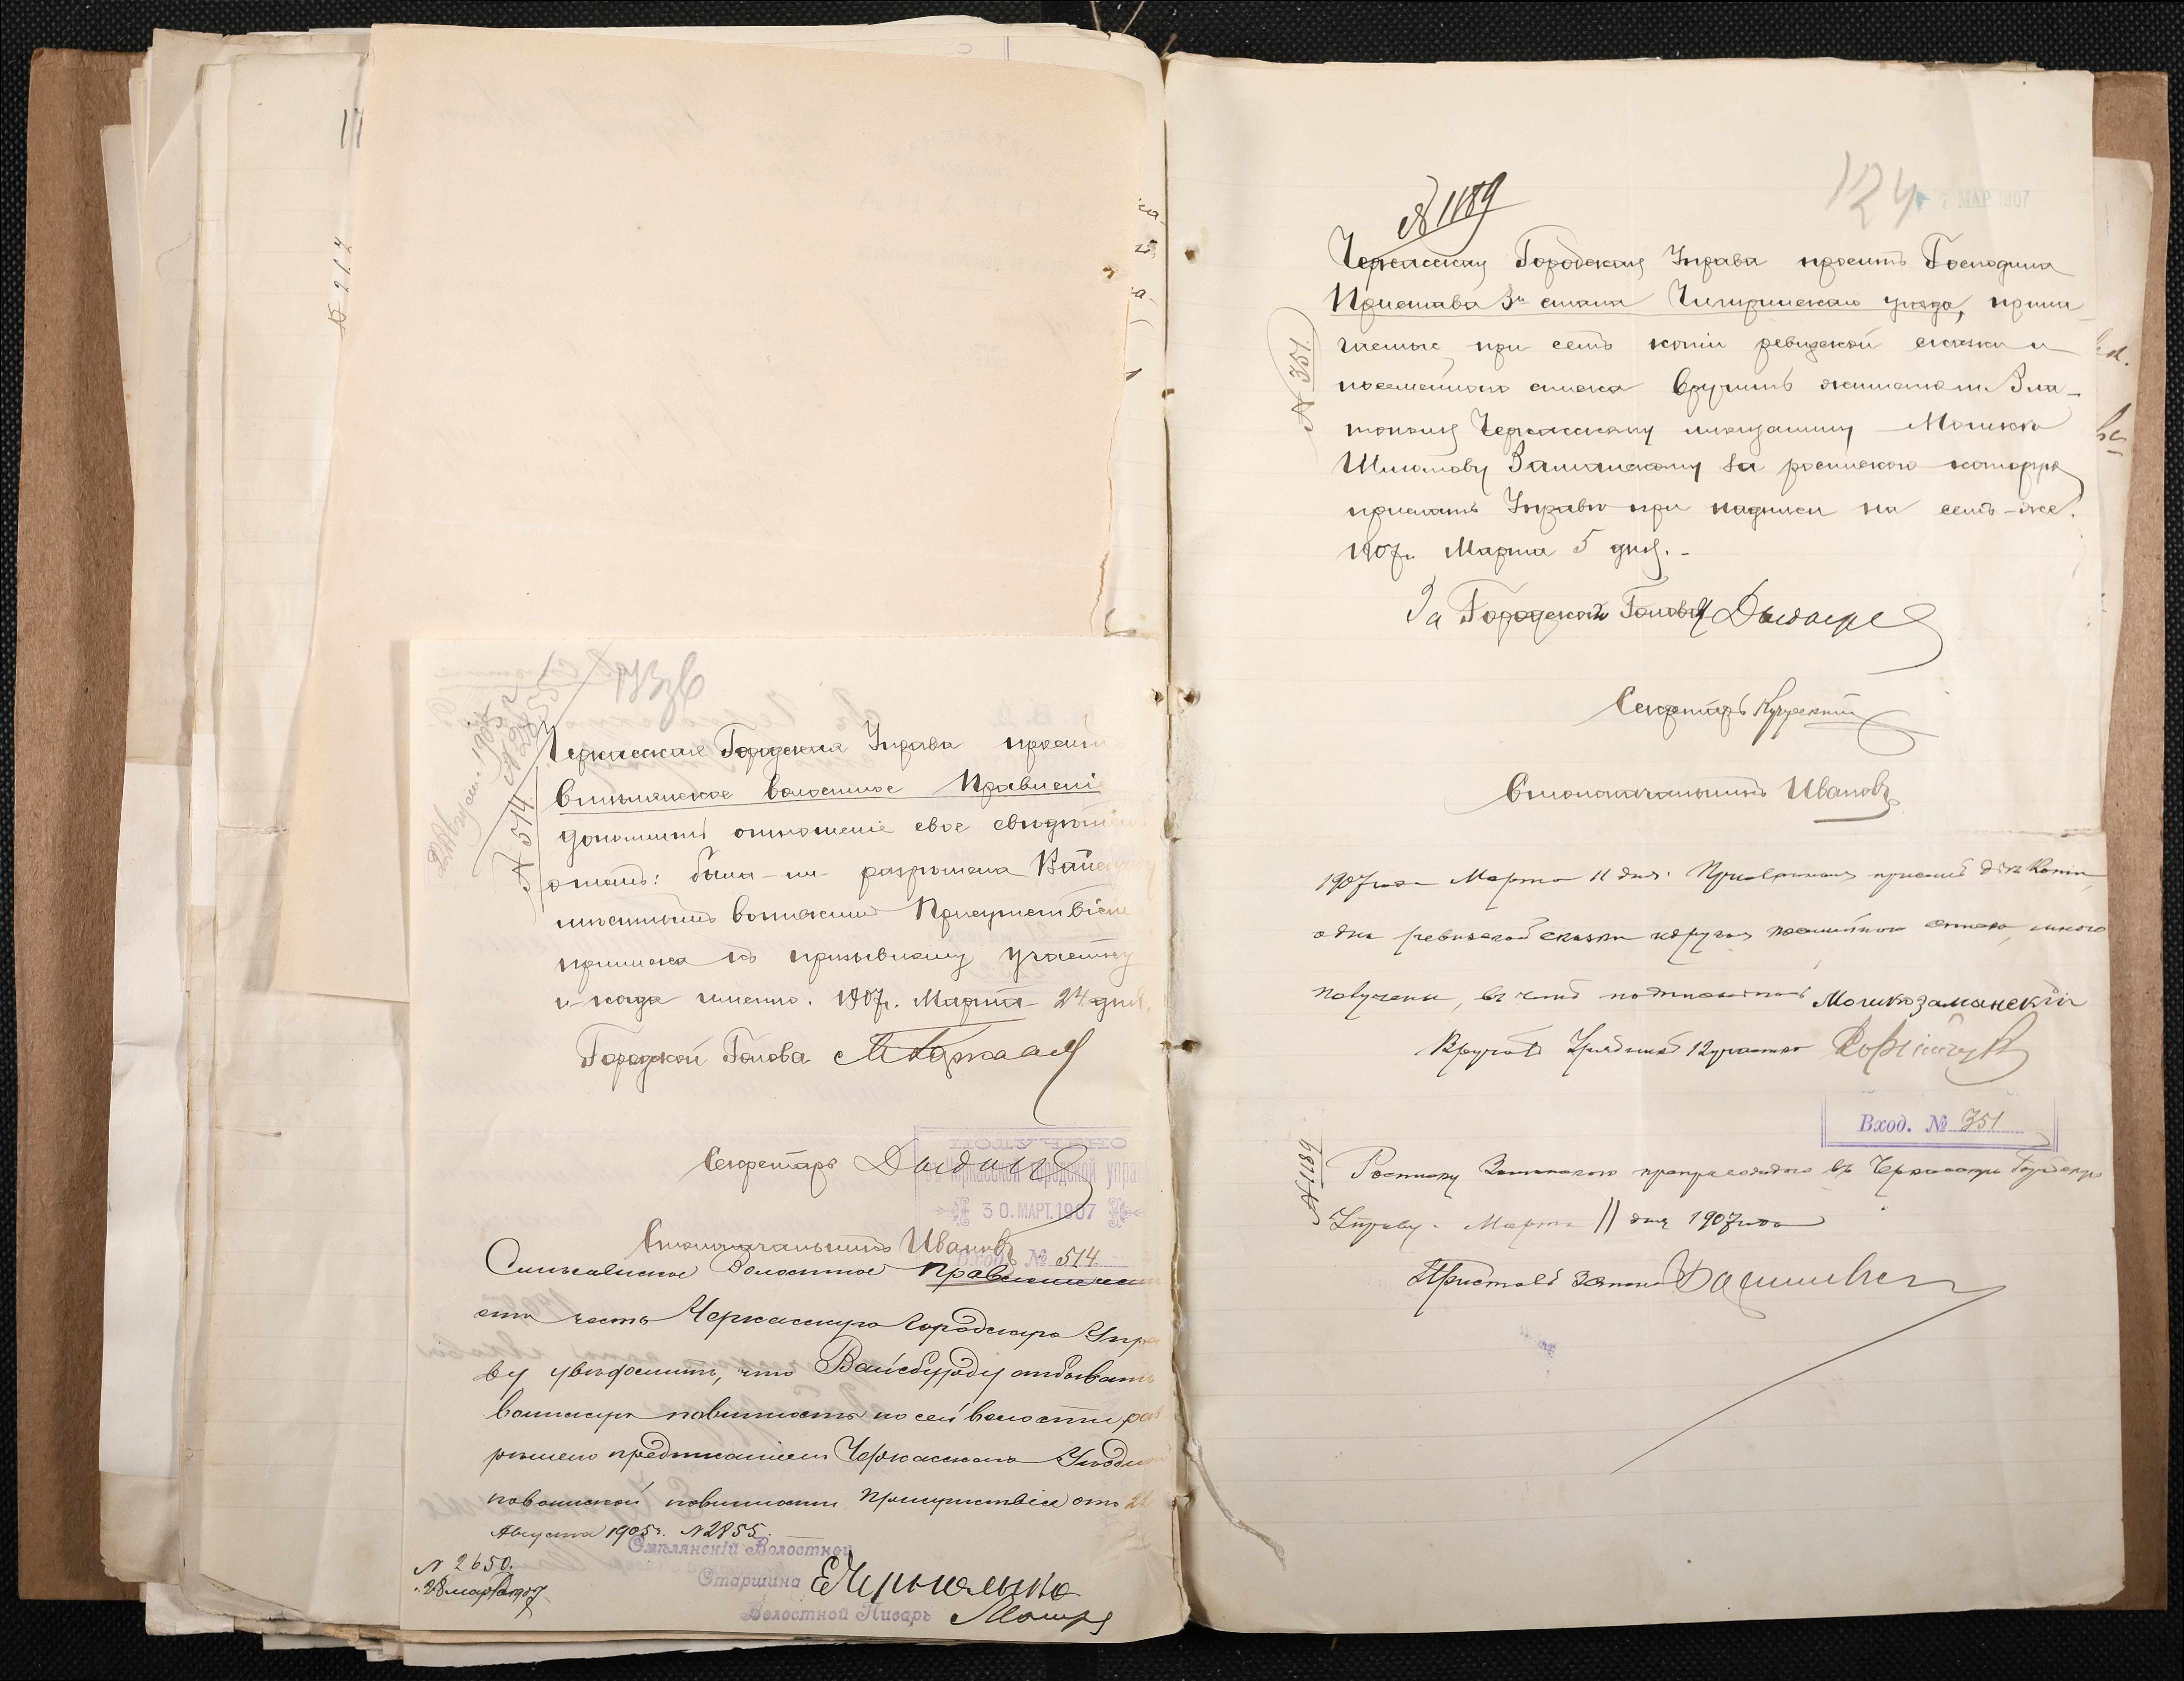 № 514
Черкасская Городская Управа проситъ
Смѣлянское волостное Правлені
дополнить отношеніе свое свидѣтел
о томъ: была-ли разрѣшена Вайс
воинскимъ Присутствіем
приписка къ призывному участку
и когда именно. 1907г. Марта 24 дня.
Городской Голова
Секретарь
Столоначальникъ Ивановъ
ПОЛУЧЕНО
въ Черкасской городской упра
30. МАРТ. 1907
Вход. № 514
Смѣлянское Волостное Правленіе имѣетъ
честь Черкасскую Городскую Упра
ву увѣдомить, что Вайсбурду отбывать
воинскую повинность по сей волости раз
рѣшено предписаніемъ Черкасскаго Уѣздн
по воинской повинности Присутствія отъ 22
Августа 1905г. №2855.
Смѣлянскій Волостной
Старшина
Волостной Писарь
№ 2650.
28 марта 1907
№ 1189
124
7 МАР 1907
Черкасская Городская Управа проситъ Господина
Пристава 3го стана Чигиринскаго уѣзда, прила-
гаемые при семъ копіи ревизской сказки и
посемейнаго списка вручить жителю м. Зла-
тополя Черкасскому мѣщанину Мошко
Шмулову Заманскому за роспискою которую
прислать Управѣ при надписи на семъ-же.
1907г. Марта 5 дня.-
№ 351
За Городской Голова
Секретарь
Столоначальникъ Ивановъ
1907 года Марта 11 дня. Приложенныя при семъ двѣ копіи,
одна ревизской сказки и другая посемейнаго списка, мною
получены, въ чемъ подписываюсь Мошко Заманскій
Вручилъ Урядникъ 12 участка
Вход. № 351
№ 1189
Росписку Заманскаго препровождаю въ Черкасскую Городскую
Управу. Марта 11 дня 1907 года
Приставъ 3 стана